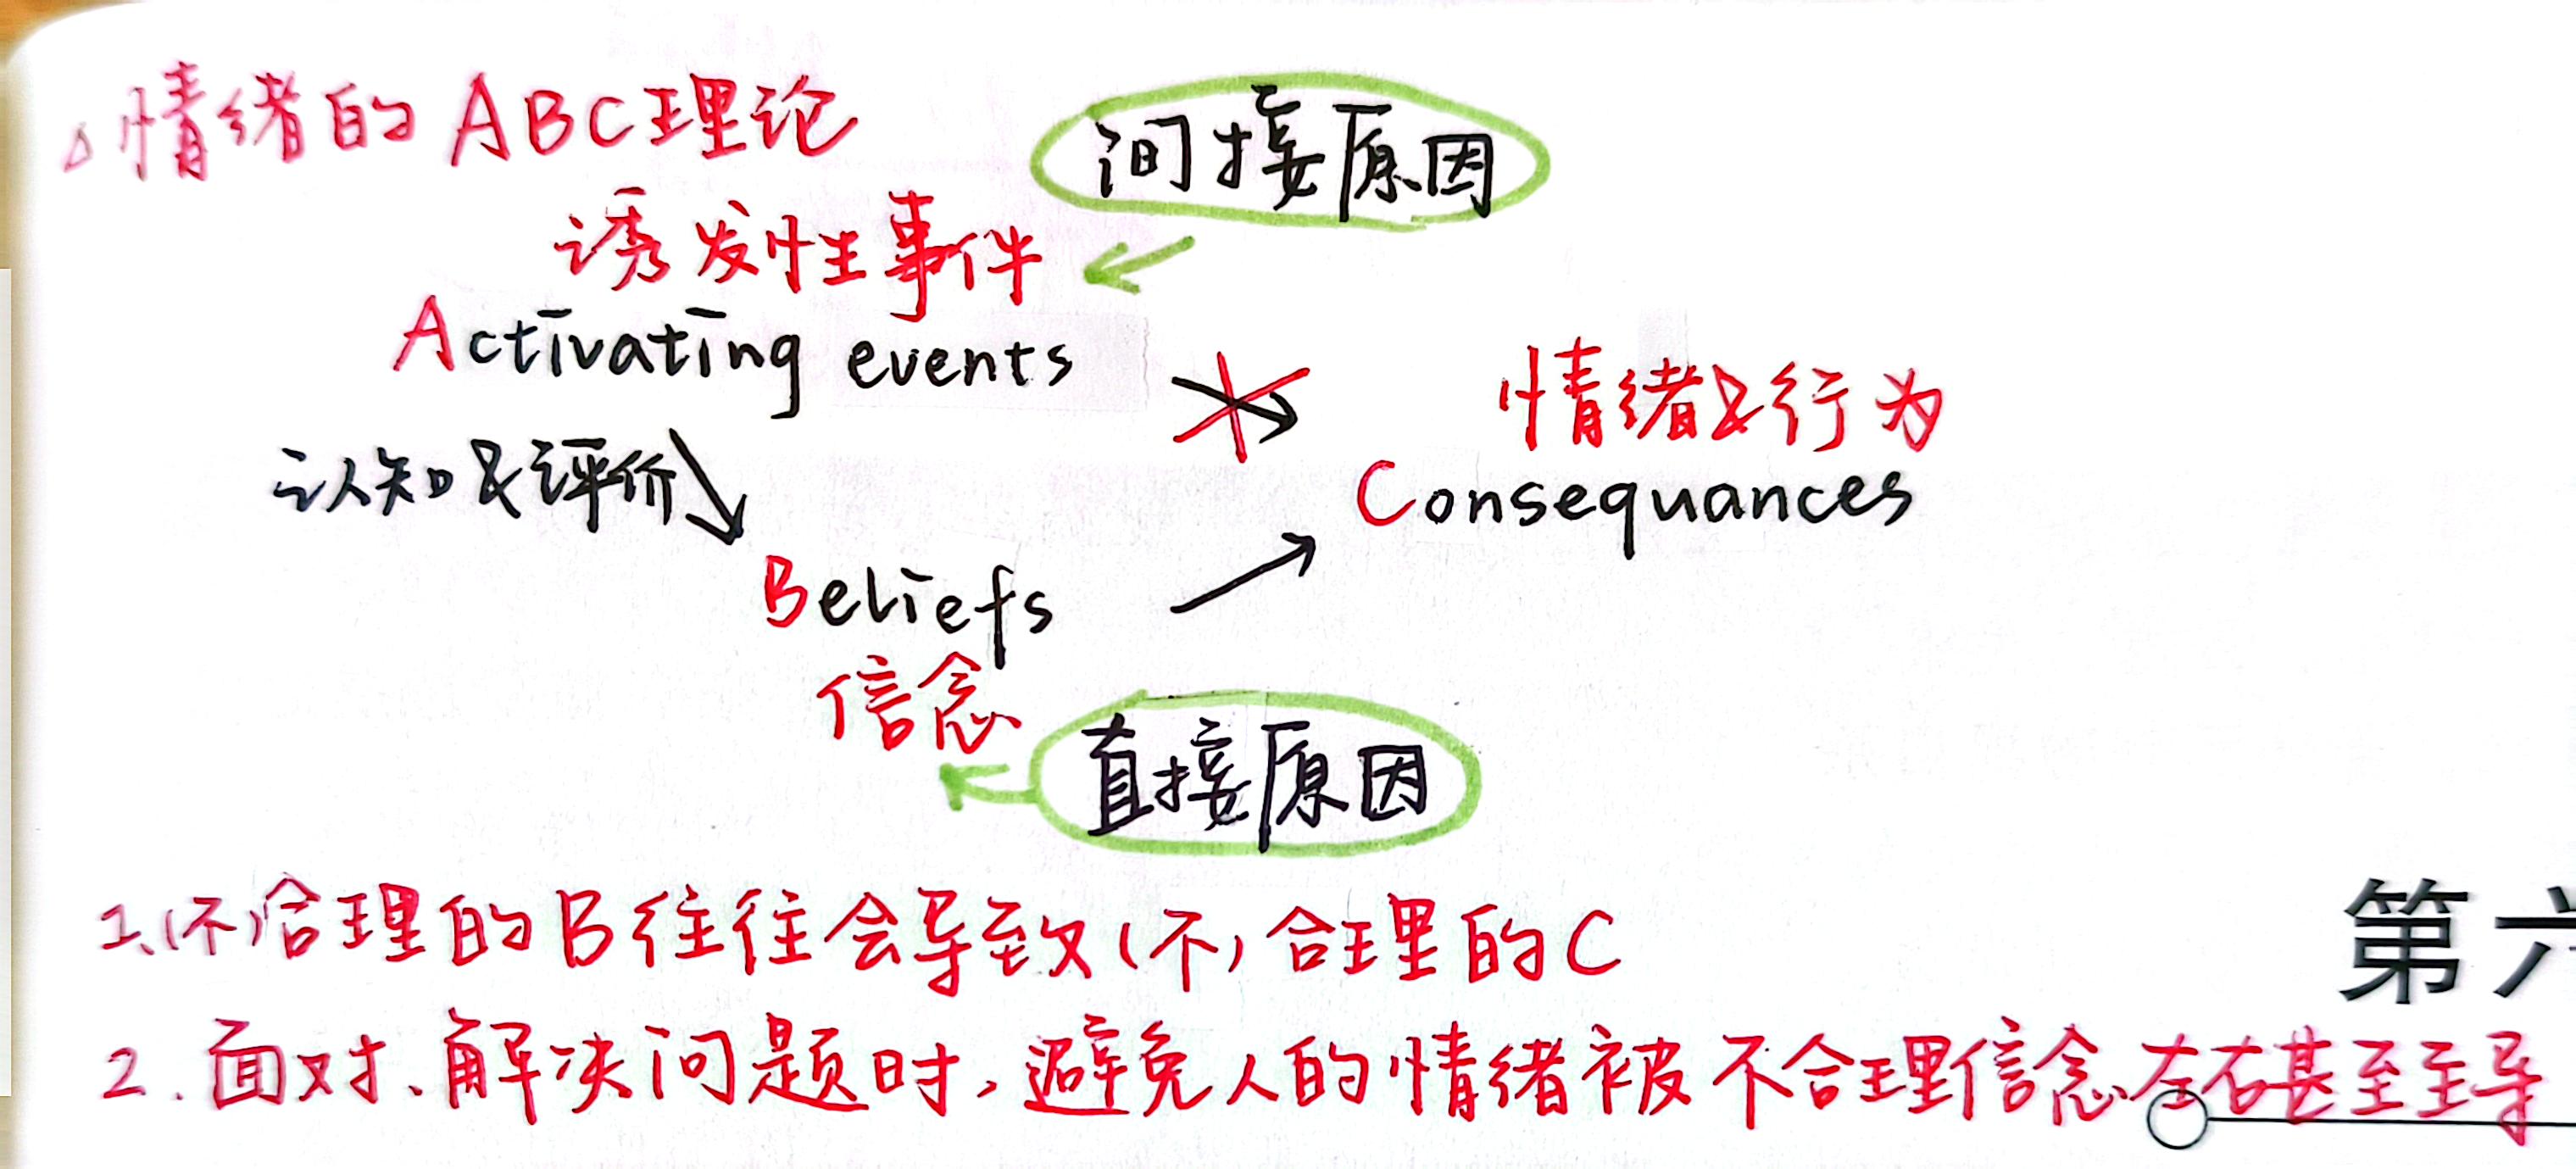 △情绪的ABC理论
间接原因
诱发性事件
Activating events
情绪&行为
认知&评价
Consequances
Beliefs
信念
直接原因
1、(不)合理的B往往会导致(不)合理的C
第六
2.面对、解决问题时,避免人的情绪被不合理信念左右甚至主导